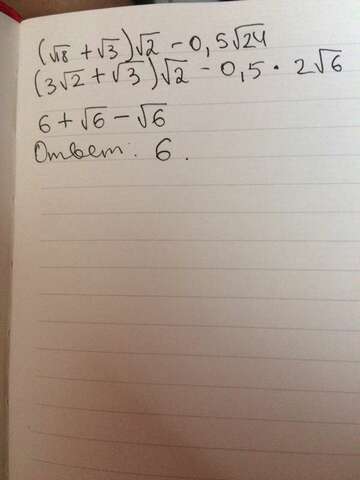 (√18 + √3)√2 - 0,5√24
(3√2 + √3)√2 - 0,5 · 2√6
6 + √6 - √6
Ответ: 6.